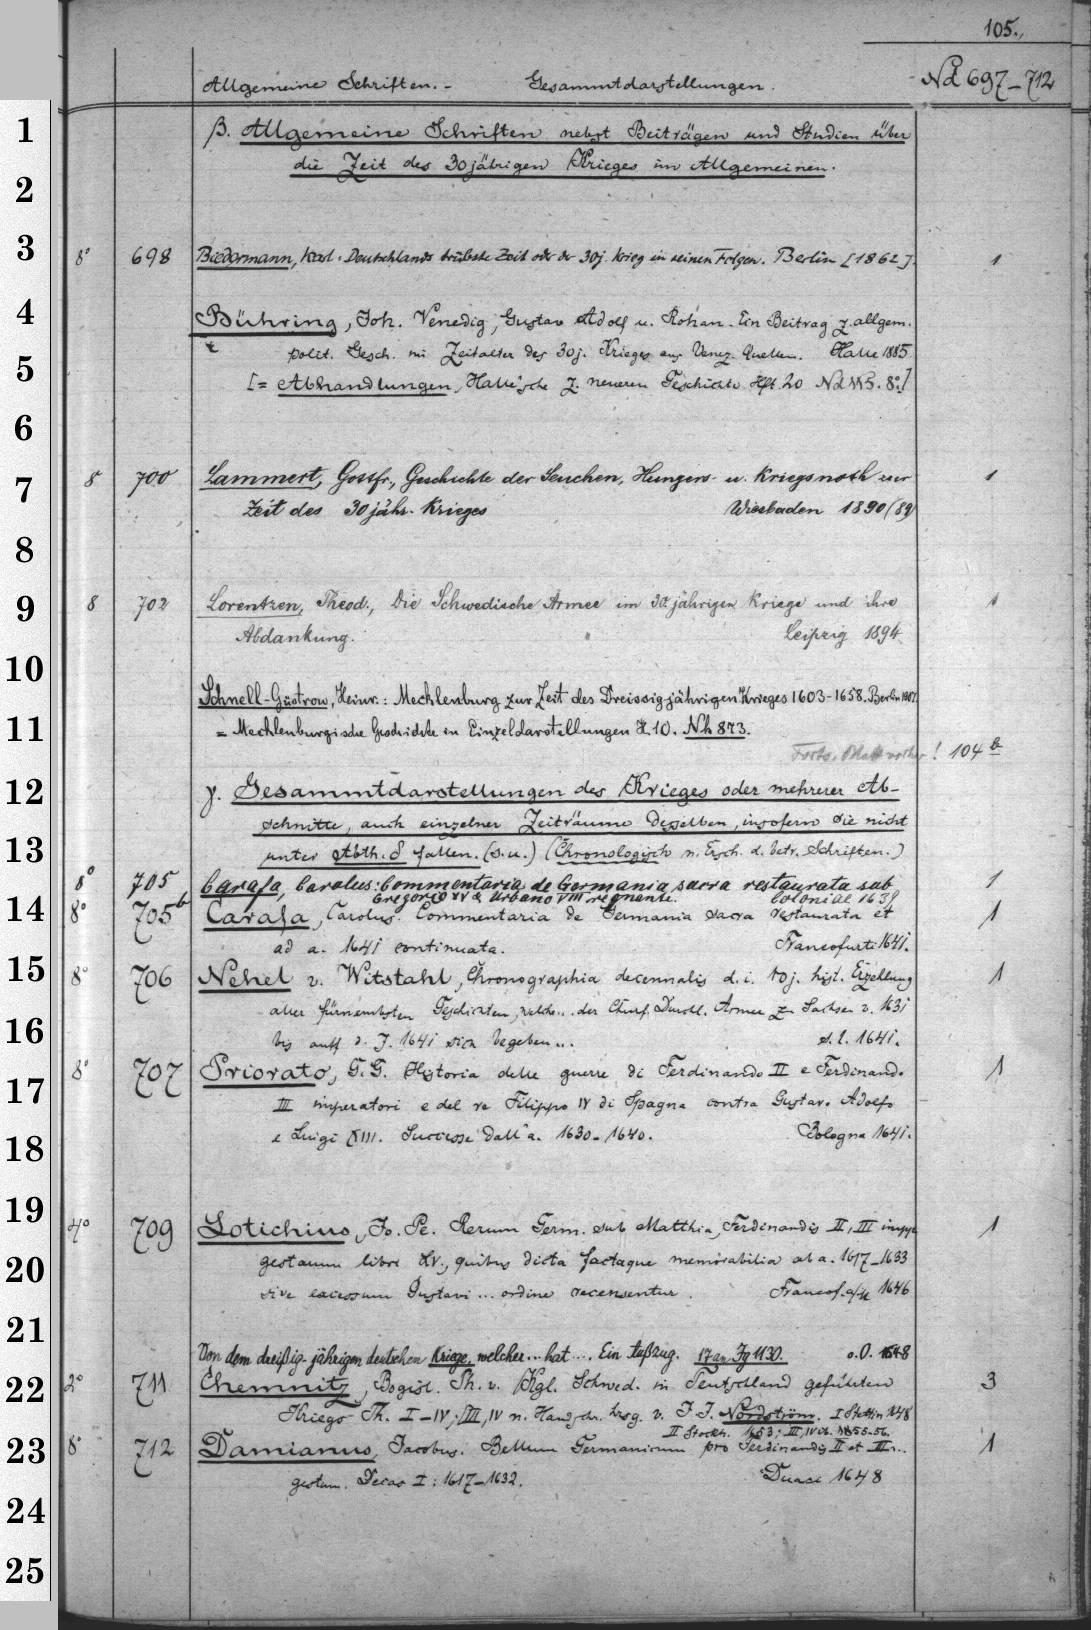 105.
Allgemeine Schriften. - Gesammtdarstellungen. Nd 697-712
β. Allgemeine Schriften nebst Beiträgen und Studien über
die Zeit des 30jährigen Krieges im Allgemeinen.
1
2
3
8° 698 Biedermann, Karl: Deutschlands trübste Zeit oder der 30j. Krieg in seinen Folgen. Berlin [1862]. 1
4
Bühring, Joh. Venedig, Gustav Adolf u. Rohan. Ein Beitrag z. allgem.
polit. Gesch. im Zeitalter des 30j. Krieges aus Venez. Quellen. Halle 1885.
5
[= Abhandlungen, Halle'sche z. neueren Geschichte Hft. 20 8°.]
6
7
8 700 Lammert, Gottfr., Geschichte der Seuchen, Hungers- u. Kriegsnoth zur 1
Zeit des 30jähr. Krieges Wiesbaden 1890 (89)
8
9
8 702 Lorentzen, Theod., Die Schwedische Armee im 30jährigen Kriege und ihre 1
Abdankung. Leipzig 1894
10
Schnell-Güstrow, Heinr.: Mecklenburg zur Zeit des Dreissigjährigen Krieges 1603-1658. Berlin 1907.
11
= Mecklenburgische Geschichte in Einzeldarstellungen H. 10. Nh 873.
Forts. Blatt vorher! 104 b
12
γ. Gesammtdarstellungen des Krieges oder mehrerer Ab-
schnitte, auch einzelner Zeiträume desselben, insofern sie nicht
13
unter Abth. δ fallen. (s.u.) (Chronologisch n. Ersch. d. betr. Schriften.)
8° 705 Carafa, Carolus: Commentaria de Germania sacra restaurata sub 1
Gregorio XV & Urbano VIII regnante. Coloniae 1639
14
8° 705b Carafa, Carolus. Commentaria de Germania sacra restaurata et 1
ad a. 1641 continuata. Francofurti 1641.
15
8° 706 Nehel v. Witstahl, Chronographia decennalis d. i. 10j. hist. Erzellung 1
aller fürnembsten Geschichten, welche... der Churf. Durchl. Armee zu Sachsen v. 1631
16
bis auff d. J. 1641 sich begeben... s. l. 1641.
8° 707 Priorato, G. G. Historia delle guerre di Ferdinando II e Ferdinando 1
17
III imperatori e del re Filippo IV di Spagna contra Gustavo Adolfo
e Luigi XIII. Successe dall'a. 1630-1640. Bologna 1641.
18
19
4° 709 Lotichius, Jo. Pe. Rerum Germ. sub Matthia, Ferdinandis II, III impp. 1
20
gestarum libri LV., quibus dicta factaque memorabilia ab a. 1617-1633
sive excessum Gustavi... ordine recensentur. Francof. a/M 1646
21
Von dem dreißig-jährigen deutschen Kriege, welcher... hat.... Ein Aufzug. 17 an Jg 1130. o. O. 1648
22
2° 711 Chemnitz, Bogisl. Ph. v. Kgl. Schwed. in Teutschland geführten 3
Kriegs Th. I-IV; III, IV n. Handschr. hrsg. v. J. J. Nordström. I Stettin 1648
II Stockh. 1653; III, IV ib. 1855-56.
23
8° 712 Damianus, Jacobus. Bellum Germanicum pro Ferdinandis II et III... 1
gestum. Decas I: 1617-1632. Duaci 1648
24
25